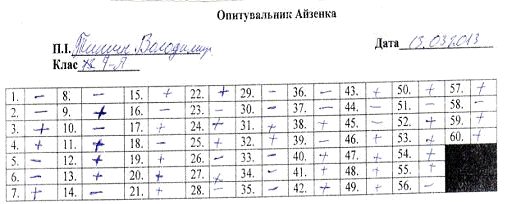 Опитувальник Айзенка
П.І. Володимир Дата 15.03.2013
Клас 9-А
1. – 8. – 15. + 22. + 29. – 36. – 43. + 50. + 57. +
2. – 9. + 16. – 23. – 30. – 37. – 44. – 51. – 58. –
3. + 10. – 17. + 24. + 31. + 38. + 45. – 52. + 59. +
4. + 11. + 18. – 25. + 32. + 39. – 46. + 53. + 60. +
5. – 12. + 19. + 26. – 33. – 40. + 47. + 54. +
6. – 13. – 20. + 27. + 34. – 41. + 48. + 55. +
7. + 14. – 21. + 28. – 35. – 42. + 49. + 56. –